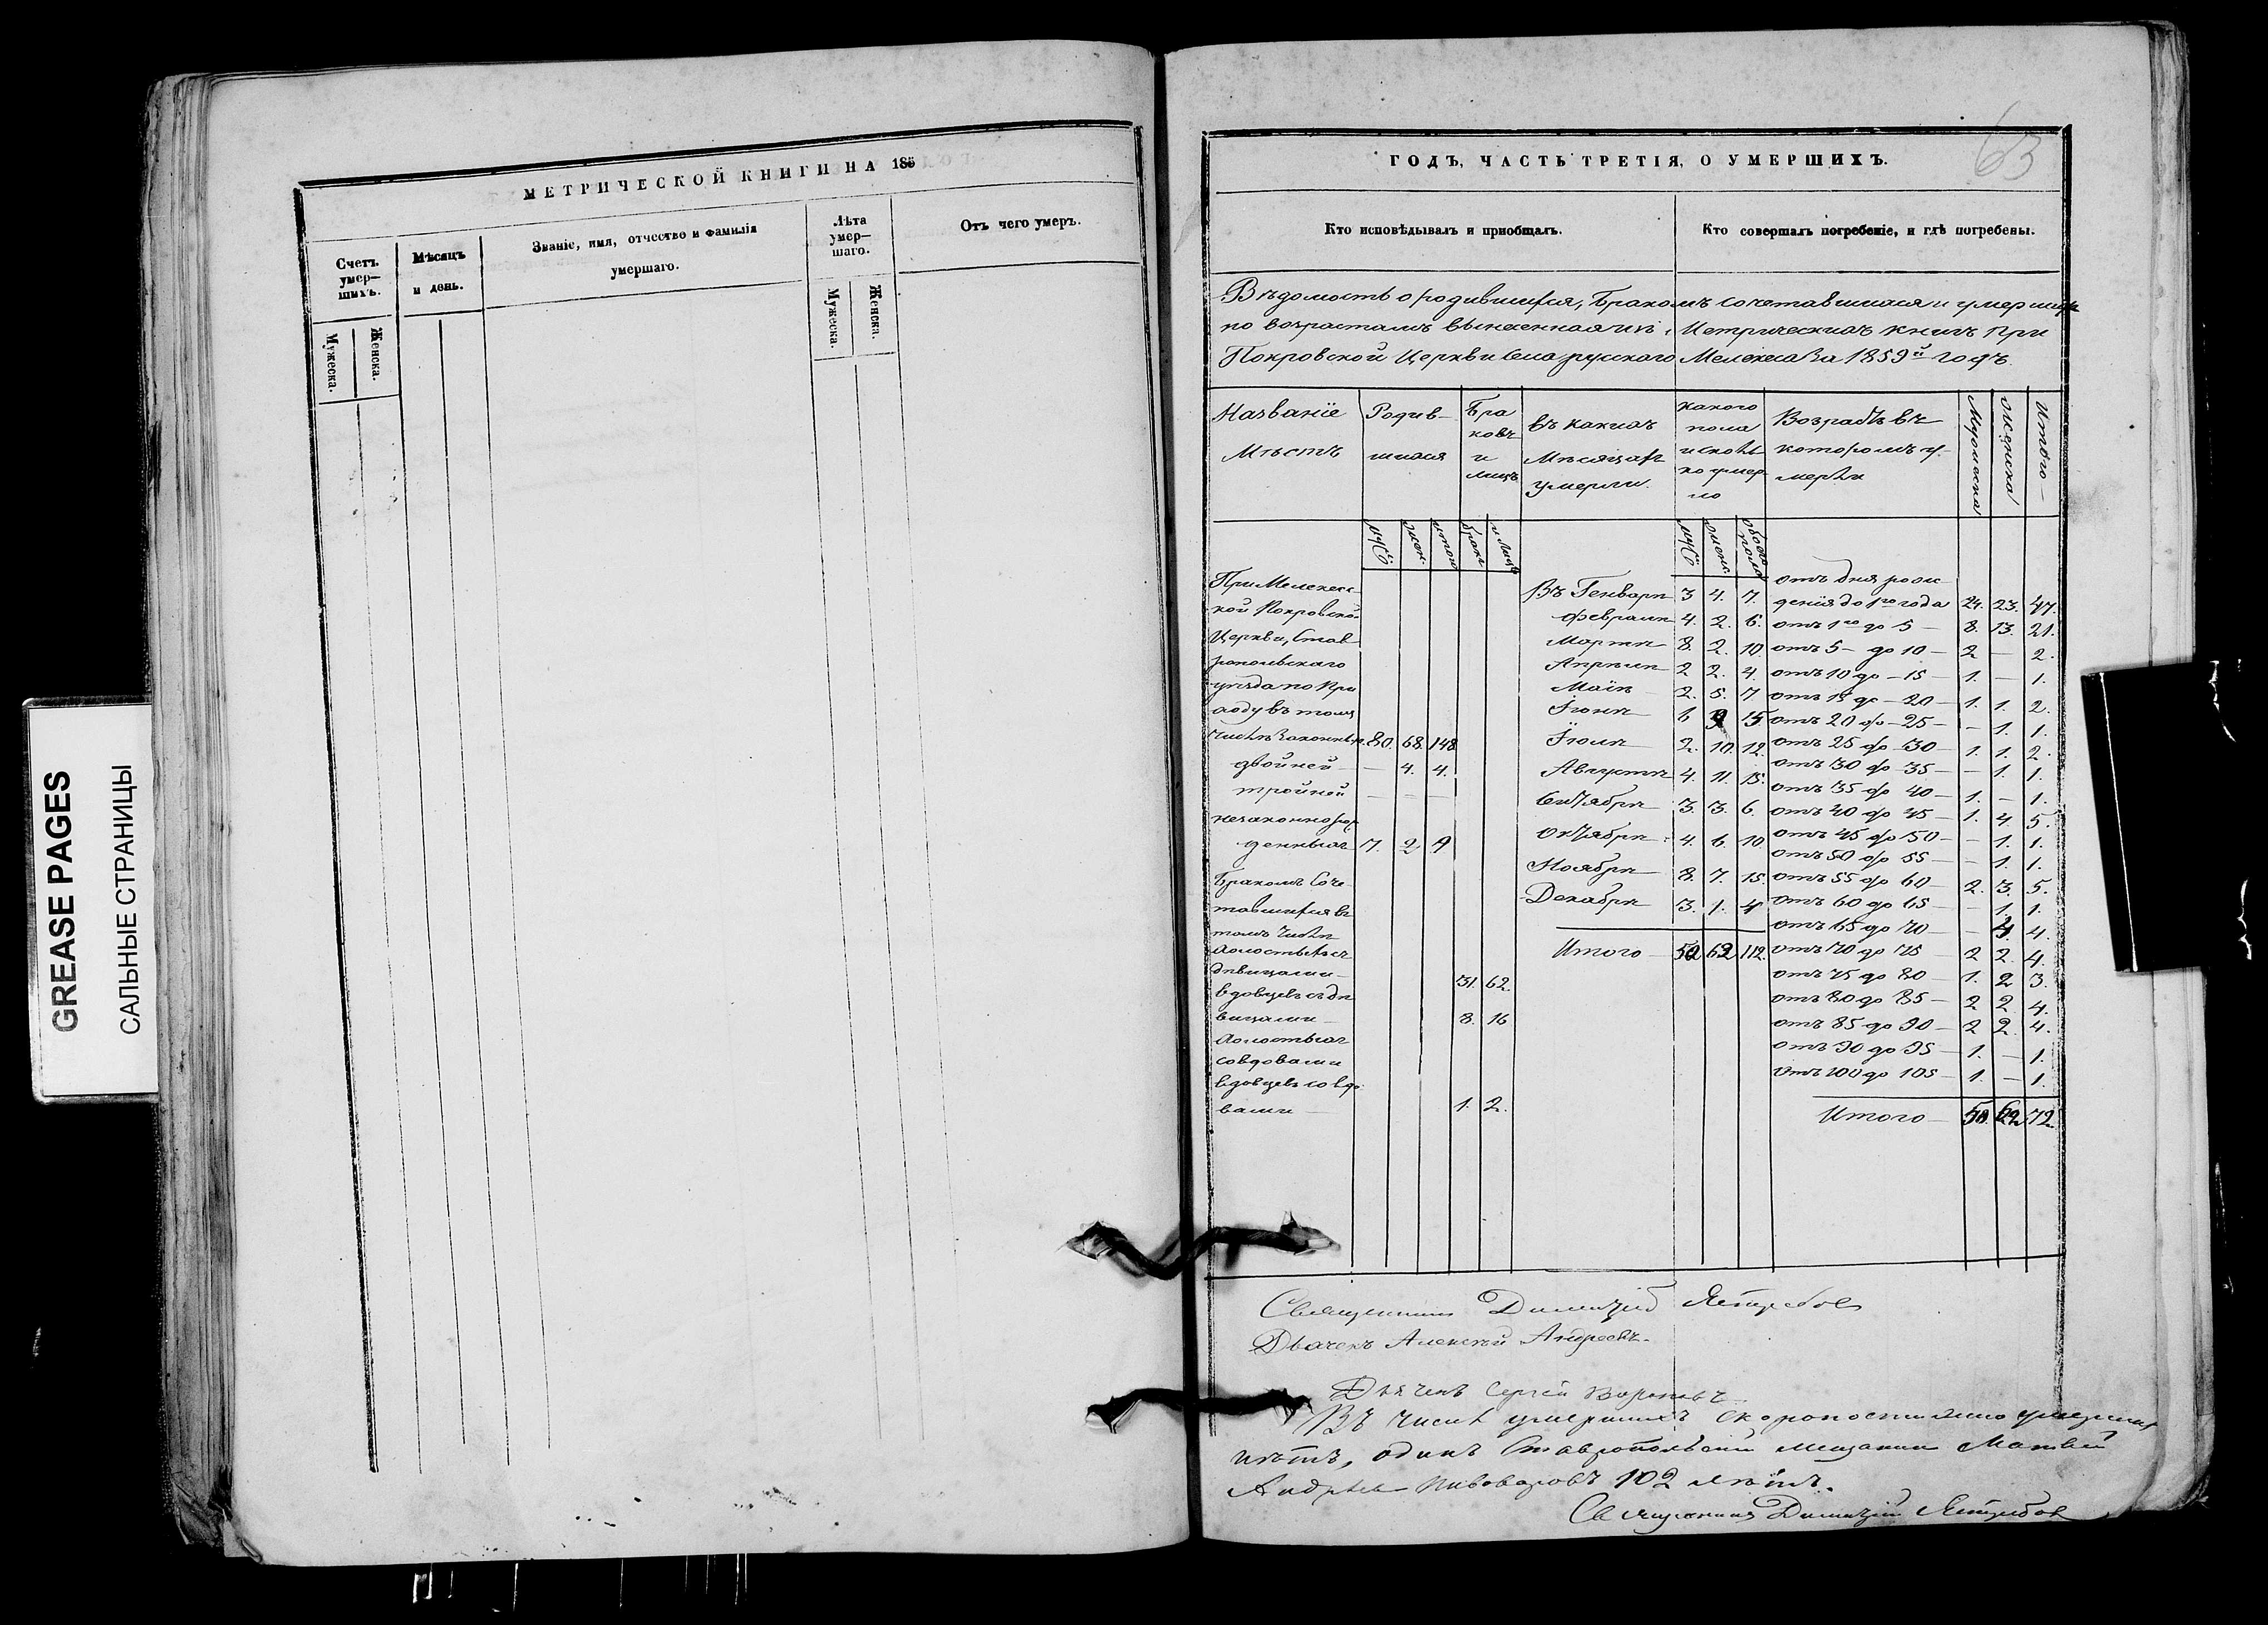 GREASE PAGES
САЛЬНЫЕ СТРАНИЦЫ
МЕТРИЧЕСКОЙ КНИГИ НА 185
Счетъ умер-шихъ.
Мужеска.
Женска.
Мѣсяцъ и день.
Званіе, имя, отчество и фамилія
умершаго.
Лѣта умер-шаго.
Мужеска.
Женска.
Отъ чего умеръ.
63
ГОДЪ, ЧАСТЬ ТРЕТІЯ, О УМЕРШИХЪ.
Кто исповѣдывалъ и пріобщалъ.
Кто совершалъ погребеніе, и гдѣ погребены.
Вѣдомость о родившихся, бракомъ сочетавшихся и умершихъ
по возрастамъ вынесенная изъ Метрическихъ книгъ при
Покровской Церкви села русскаго Мелекеса за 1859й годъ.
Названіе Мѣстъ
Родив-шихся
Бра ковъ и лицъ
въ какихъ Мѣсяцахъ умерли.
какого пола и сколь ко умер ло
Возрастъ въ которомъ у-мерли
Мужеска
Женска
Итого
муж
жен.
итого
браки
и лицъ
муж
женс.
обоего пола
При Мелекес-
кой Покровской
Церкви, Став
ропольскаго
уѣзда по При
ходу въ томъ
числѣ законнор. 80. 68. 148
двойней — — 4. 4.
тройней — — —
незаконнорож
денныхъ 7. 2 9
Бракомъ Соче-
тавшихся въ
томъ числѣ
холостыхъ съ
дѣвицами — 31. 62.
вдовцевъ съ дѣ
вицами — 8. 16
холостыхъ
со вдовами
вдовцевъ со вдо-
вами — 1. 2.
Въ Генварѣ 3 4. 7.
Февралѣ 4. 2. 6.
Мартѣ 8. 2. 10.
Апрѣлѣ 2 2. 4.
Маіѣ 2. 5. 7
Іюнѣ 6 9 15
Іюлѣ 2. 10. 12.
Августѣ 4. 11. 15.
Сентябрѣ 3. 3. 6.
Октябрѣ 4. 6. 10
Ноябрѣ 8. 7. 15.
Декабрѣ 3. 1. 4
Итого 50 62 112.
отъ дня рож-
денія до 1го года 24. 23. 47.
отъ 1го до 5 — 8. 13. 21.
отъ 5 — до 10 — 2 — 2.
отъ 10 до — 15 — 1. — 1.
отъ 15 до — 20 — 1. 1. 2.
отъ 20 до — 25 — — 1. 1.
отъ 25 до 30 — 1. 1. 2.
отъ 30 до 35 — — 1. 1.
отъ 35 до 40 — 1. — 1.
отъ 40 до 45 — 1. 4. 5.
отъ 45 до 50 — — 1. 1.
отъ 50 до 55 — — 1. 1.
отъ 55 до 60 — 2. 3. 5.
отъ 60 до 65 — — 1. 1.
отъ 65 до 70 — — 4. 4.
отъ 70 до 75 — 2 2. 4.
отъ 75 до 80 — 1. 2 3.
отъ 80 до 85 — 2 2. 4.
отъ 85 до 90 — 2 2. 4.
отъ 90 до 95 — 1. — 1.
отъ 100 до 105 — 1. — 1.
Итого — 50. 62 112.
Священникъ Димитрій Ястребовъ
Дьячекъ Алексѣй Андреевъ.
Дьячекъ Сергѣй
Въ числѣ умершихъ скоропостижно умершихъ
нѣтъ, одинъ Ставропольскій мещанинъ Матвей
Андреевъ Пивоваровъ 102 лѣтъ.
Священникъ Димитрій Ястребовъ